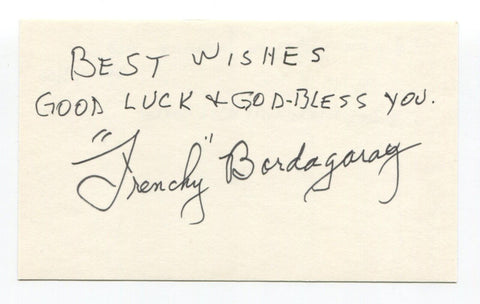 BEST WISHES
GOOD LUCK & GOD-BLESS YOU.
"Frenchy" Bordagaray